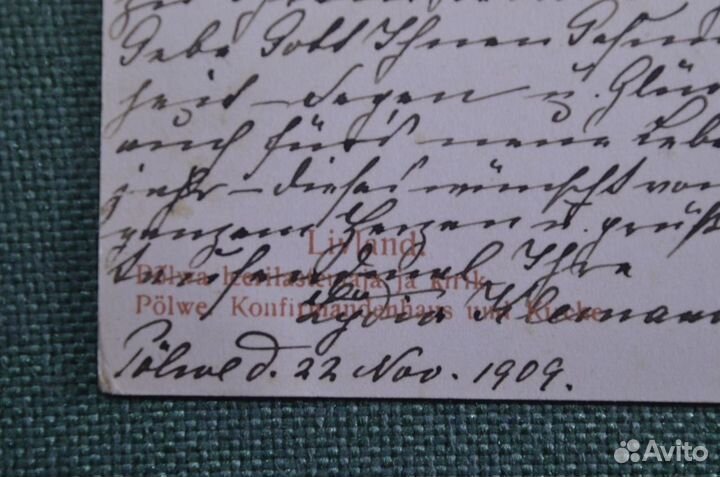 Gebe Gott Ihnen Gesund
heit – Segen u. Glück
auch fürs neue Lebe
jahr – dieses wünscht von
ganzem Herzen u. grüßt
Livland.
tausendmal Ihre
Pölwa leerilastemaja ja kirik
Pölwe, Konfirmandenhaus und Kirche
Lydia
Pölwe d. 22 Nov. 1909.
Avito